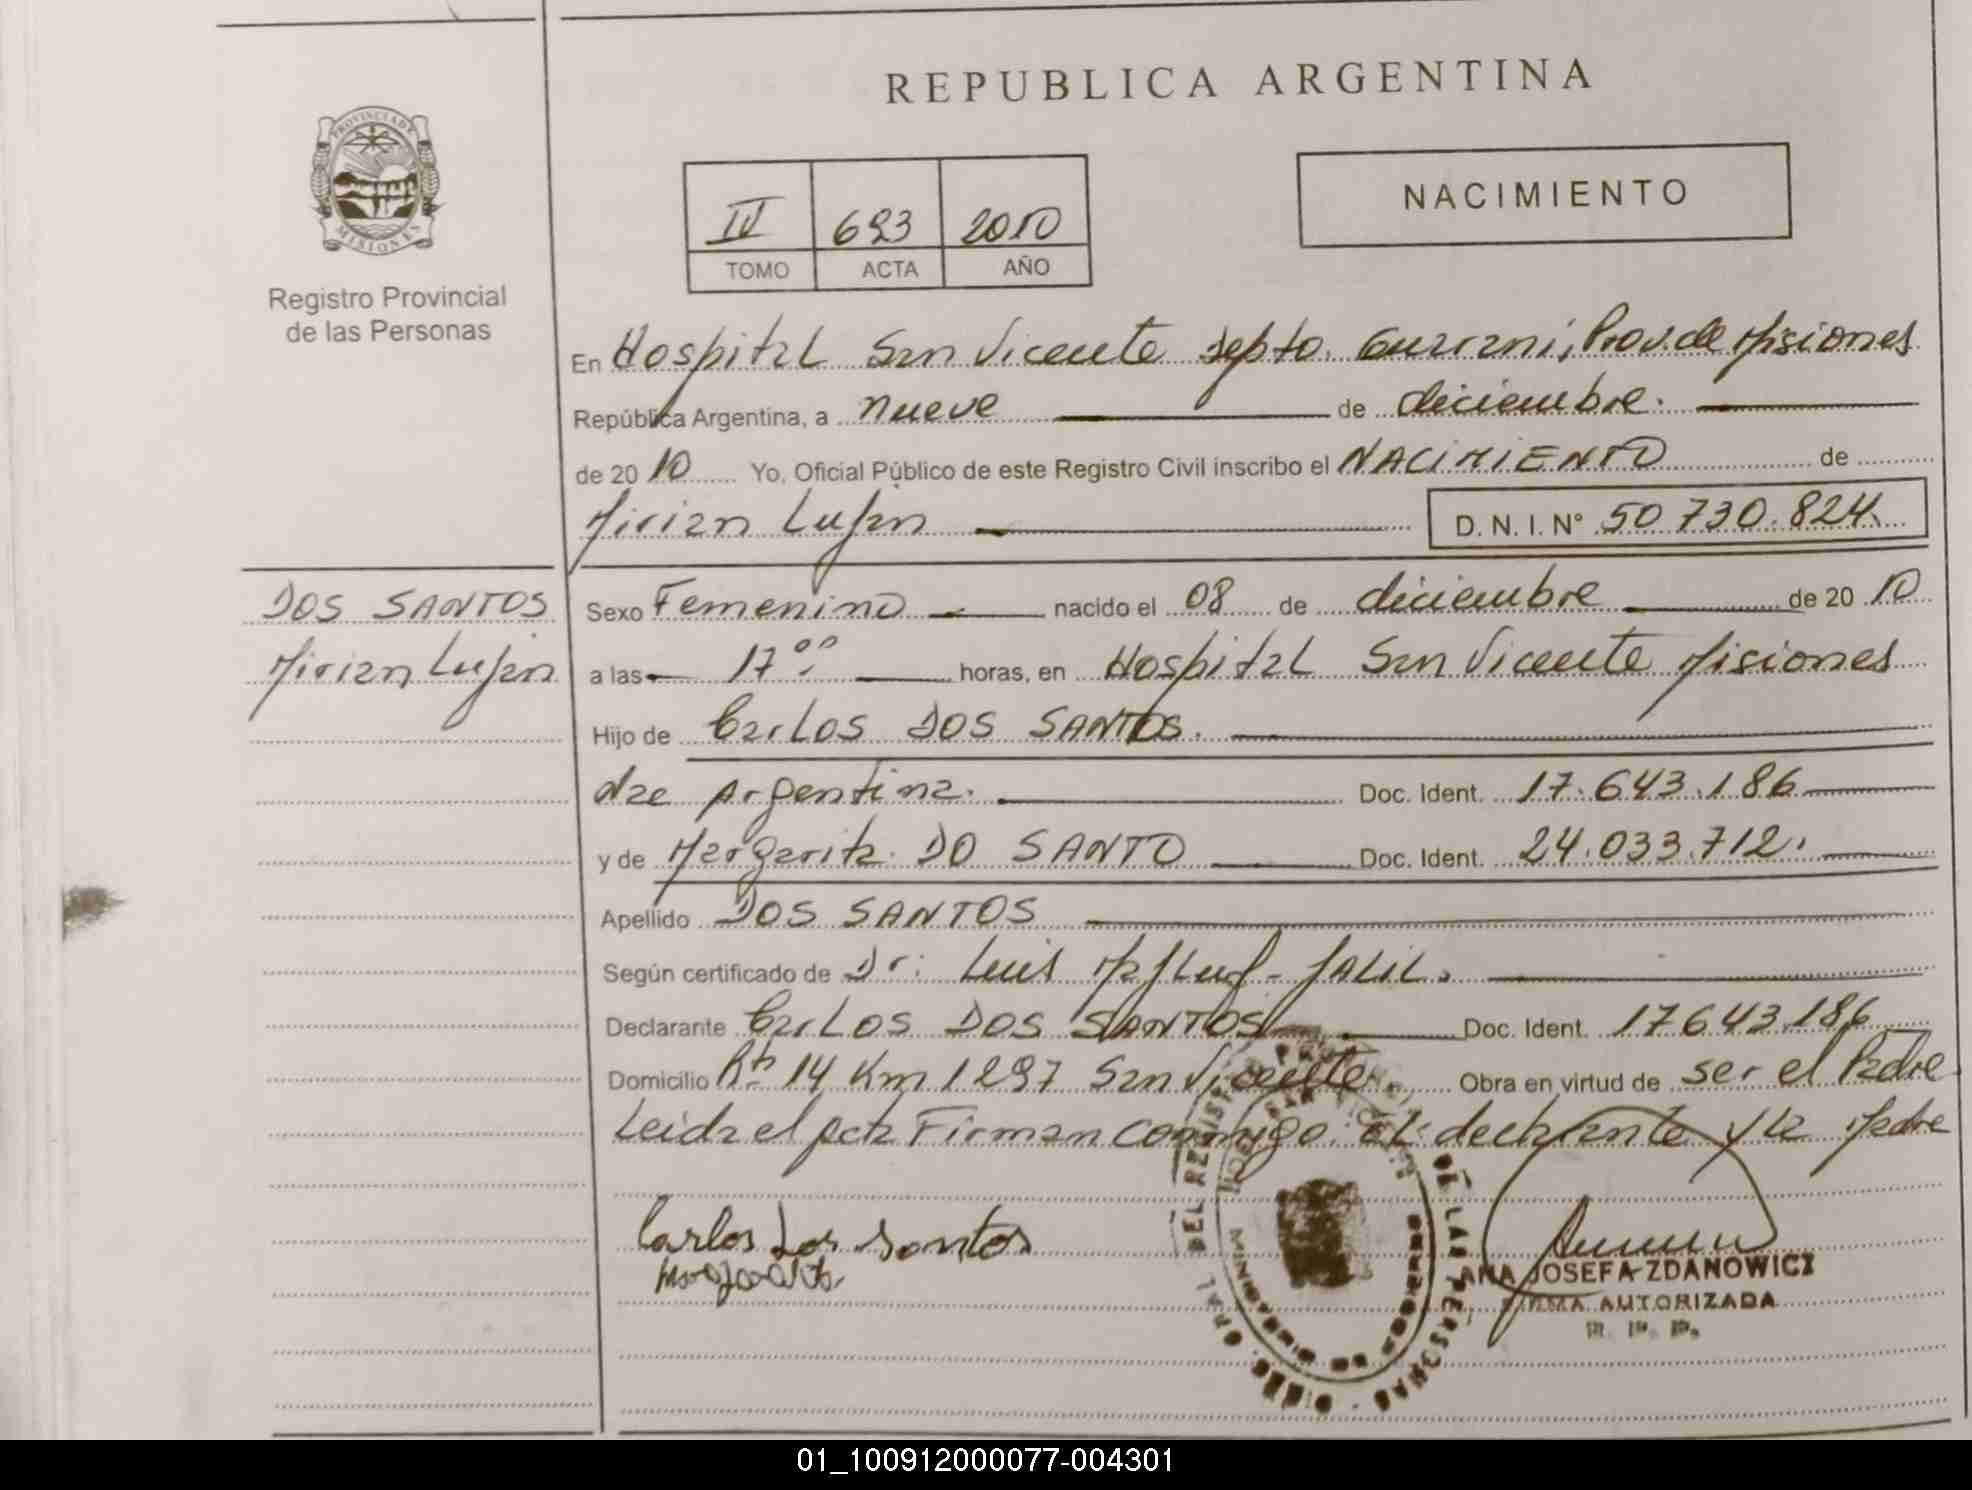 REPUBLICA ARGENTINA
PROVINCIA DE
MISIONES
Registro Provincial
de las Personas
IV 693 2010
TOMO ACTA AÑO
NACIMIENTO
En Hospital San Vicente Depto. Guarani, Prov. de Misiones
República Argentina, a nueve de diciembre.
de 2010 Yo, Oficial Público de este Registro Civil inscribo el NACIMIENTO de
Mirian Lujan D. N. I. N° 50 730.824
DOS SANTOS
Mirian Lujan
Sexo Femenino nacido el 08 de diciembre de 2010
a las 17 00 horas, en Hospital San Vicente Misiones
Hijo de Carlos DOS SANTOS.
nac Argentina. Doc. Ident. 17.643.186
y de Margarita DO SANTO Doc. Ident. 24.033.712.
Apellido DOS SANTOS
Según certificado de Dr. Luis JALIL.
Declarante Carlos DOS SANTOS Doc. Ident. 17643.186
Domicilio Rta 14 Km 1297 San Vicente. Obra en virtud de ser el Padre
Leida el acta Firman conmigo. El declarante y la Madre
Carlos Dos Santos
DEL REGISTRO DE LAS PERSONAS
ANA JOSEFA ZDANOWICZ
FIRMA AUTORIZADA
R. P. P.
01_100912000077-004301